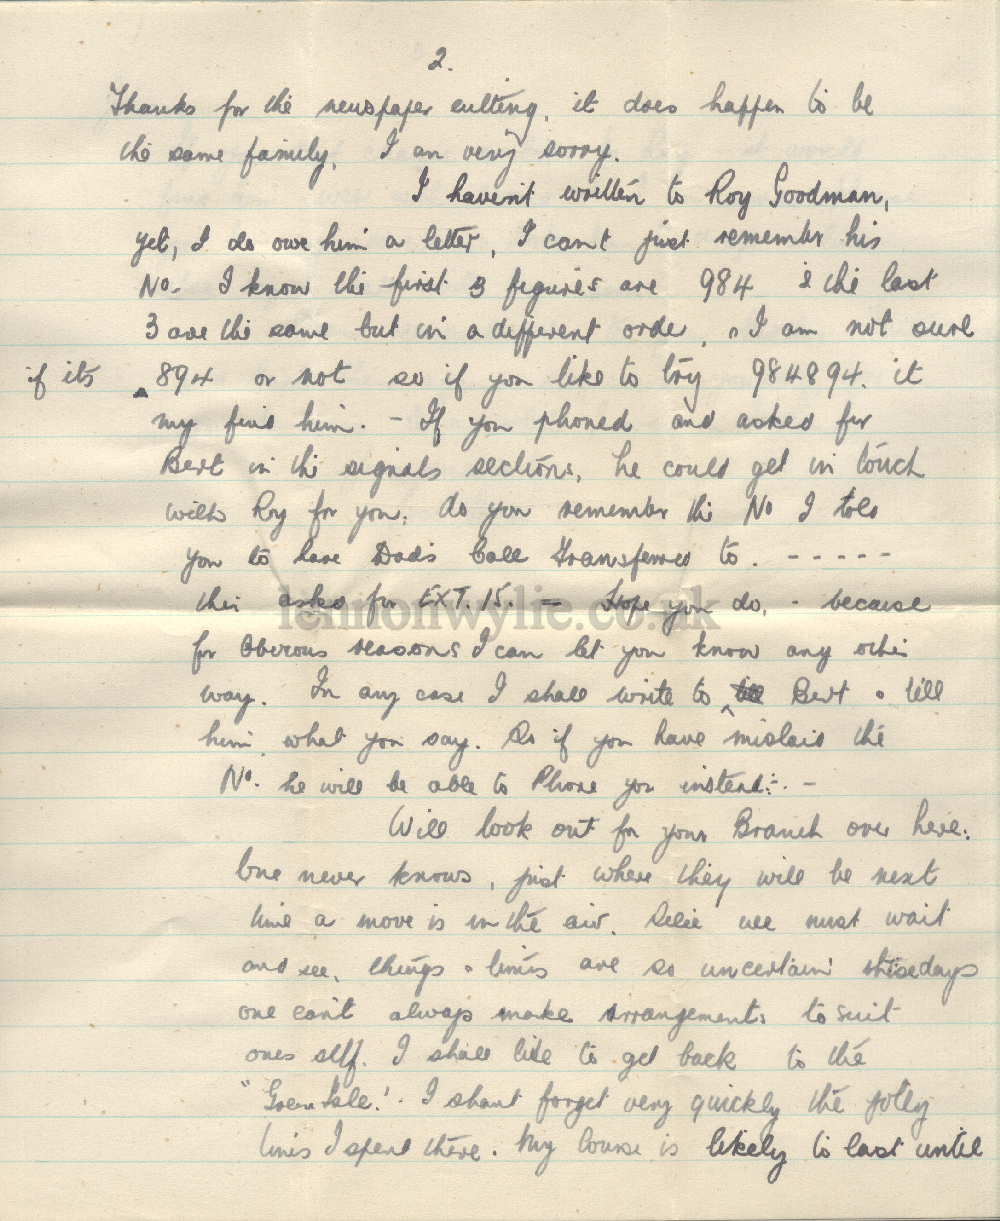 2.
Thanks for the newspaper cutting, it does happen to be
the same family, I am very sorry.
I haven't written to Roy Goodman,
yet, I do owe him a letter, I can't just remember his
No. I know the first 3 figures are 984 & the last
3 are the same but in a different order, & I am not sure
if its 894 or not so if you like to try 984894. it
my find him. - If you phoned and asked for
Bert in the signals sections, he could get in touch
with Roy for you. do you remember the No I told
you to have Dad's Call Transferred to. - - - - -
then asked for EXT. 15. - Hope you do, - because
for Obvious reasons I can let you know any other
way. In any case I shall write to Bert & tell
him, what you say. So if you have mislaid the
No. he will be able to Phone you instead. -
Will look out for your Branch over here.
One never knows, just where they will be next
time a move is in the air. Still we must wait
and see, things & times are so uncertain thesedays
one can't always make arrangements to suit
ones self. I shall like to get back to the
"Green Isle!" I shant forget very quickly the jolly
times I spent there. My Course is likely to last until
lennonwylie.co.uk